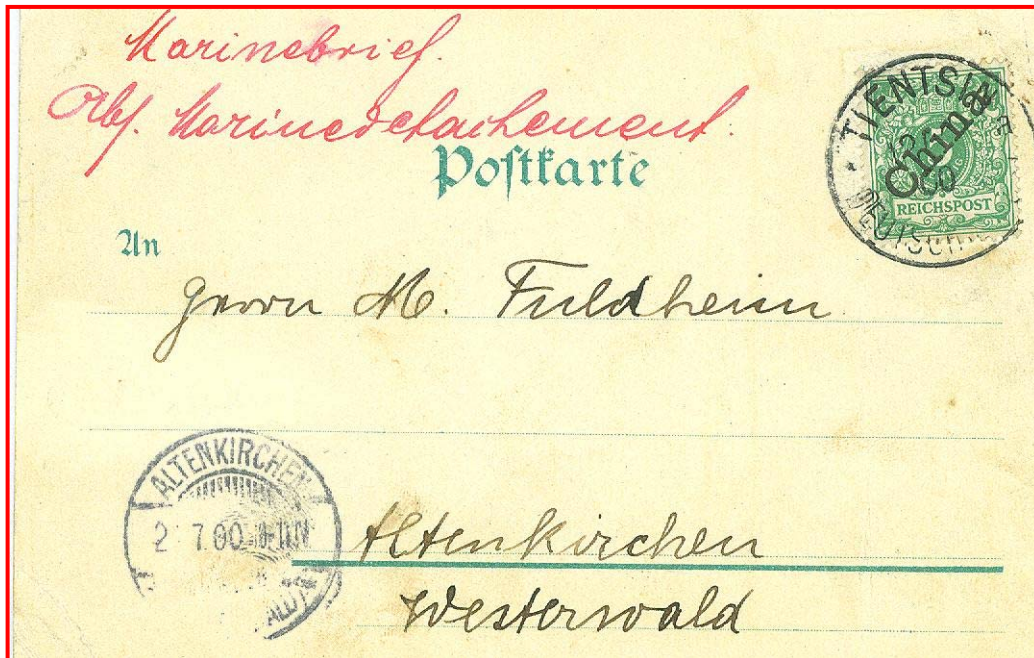 Marinebrief.
Abs. Marinedetachement.
Postkarte
TIENTSIN
China
00
REICHSPOST
DEUTSCHE
An
Herrn M. Fuldheim
ALTENKIRCHEN
2 7.00
Altenkirchen
Westerwald